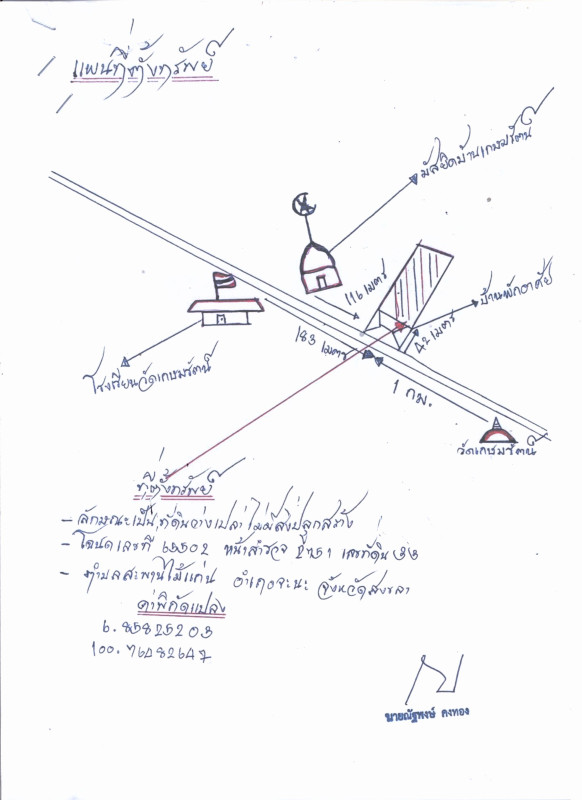 แผนที่ตั้งทรัพย์
มัสยิดบ้านเกษมรัตน์
116 เมตร
บ้านพักอาศัย
42 เมตร
183 เมตร
โรงเรียนวัดเกษมรัตน์
1 กม.
วัดเกษมรัตน์
ที่ตั้งทรัพย์
- ลักษณะเป็นที่ดินว่างเปล่า ไม่มีสิ่งปลูกสร้าง
- โฉนดเลขที่ หน้าสำรวจ เลขที่ดิน
- ตำบลสะพานไม้แก่น อำเภอจะนะ จังหวัดสงขลา
ค่าพิกัดแปลง
6.85825203
100.76482647
นายณัฐพงษ์ คงทอง